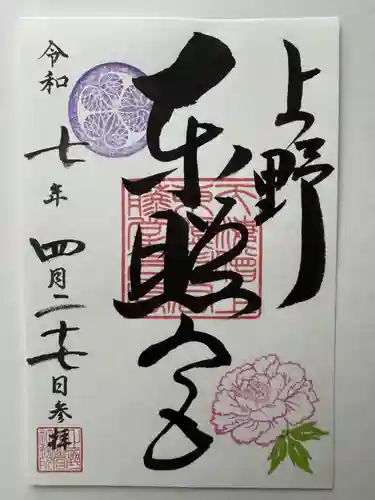 上野
東照宮
令和七年四月二十七日参拝